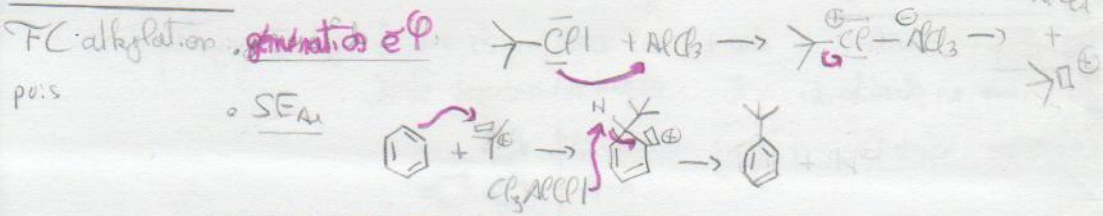 FC alkylation . génération eφ. Cl + AlCl3 → ⊕Cl–⊖AlCl3 → + ⊕
puis
∘ SEAr
+ ⊕ → H ⊕ →
Cl3AlCl